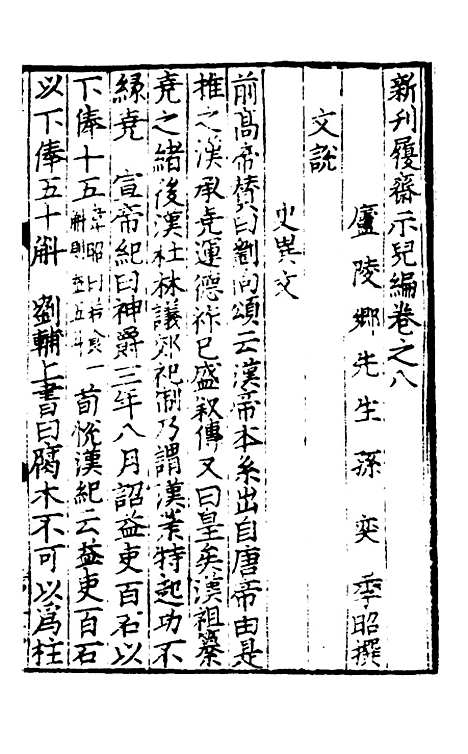 新刊履齋示兒編卷之八
廬陵鄉先生孫奕季昭撰
文說
史異文
前高帝贊曰劉向頌云漢帝本系出自唐帝由是
推之漢承堯運德祚已盛叙傳又曰皇矣漢祖纂
堯之緒後漢杜林議郊祀制乃謂漢業特起功不
緣堯 宣帝紀曰神爵三年八月詔益吏百石以
下俸十五韋昭曰若食一斛則益五斗荀悅漢紀云益吏百石
以下俸五十斛 劉輔上書曰腐木不可以爲柱